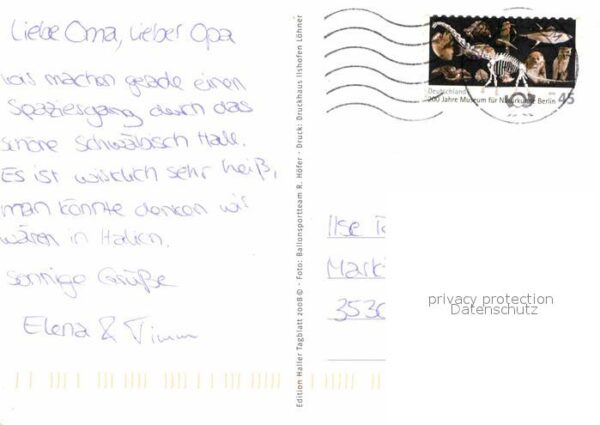 Liebe Oma, lieber Opa
wir machen gerade einen
Spaziergang durch das
schöne Schwäbisch Hall.
Es ist wirklich sehr heiß,
man könnte denken wir
wären in Italien.
Sonnige Grüße
Elena & Timm
Edition Haller Tagblatt 2008 © · Foto: Ballonsportteam R. Höfer · Druck: Druckhaus Ilshofen Löhner
Deutschland
200 Jahre Museum für Naturkunde Berlin 45
Ilse
Mark
3530
privacy protection
Datenschutz